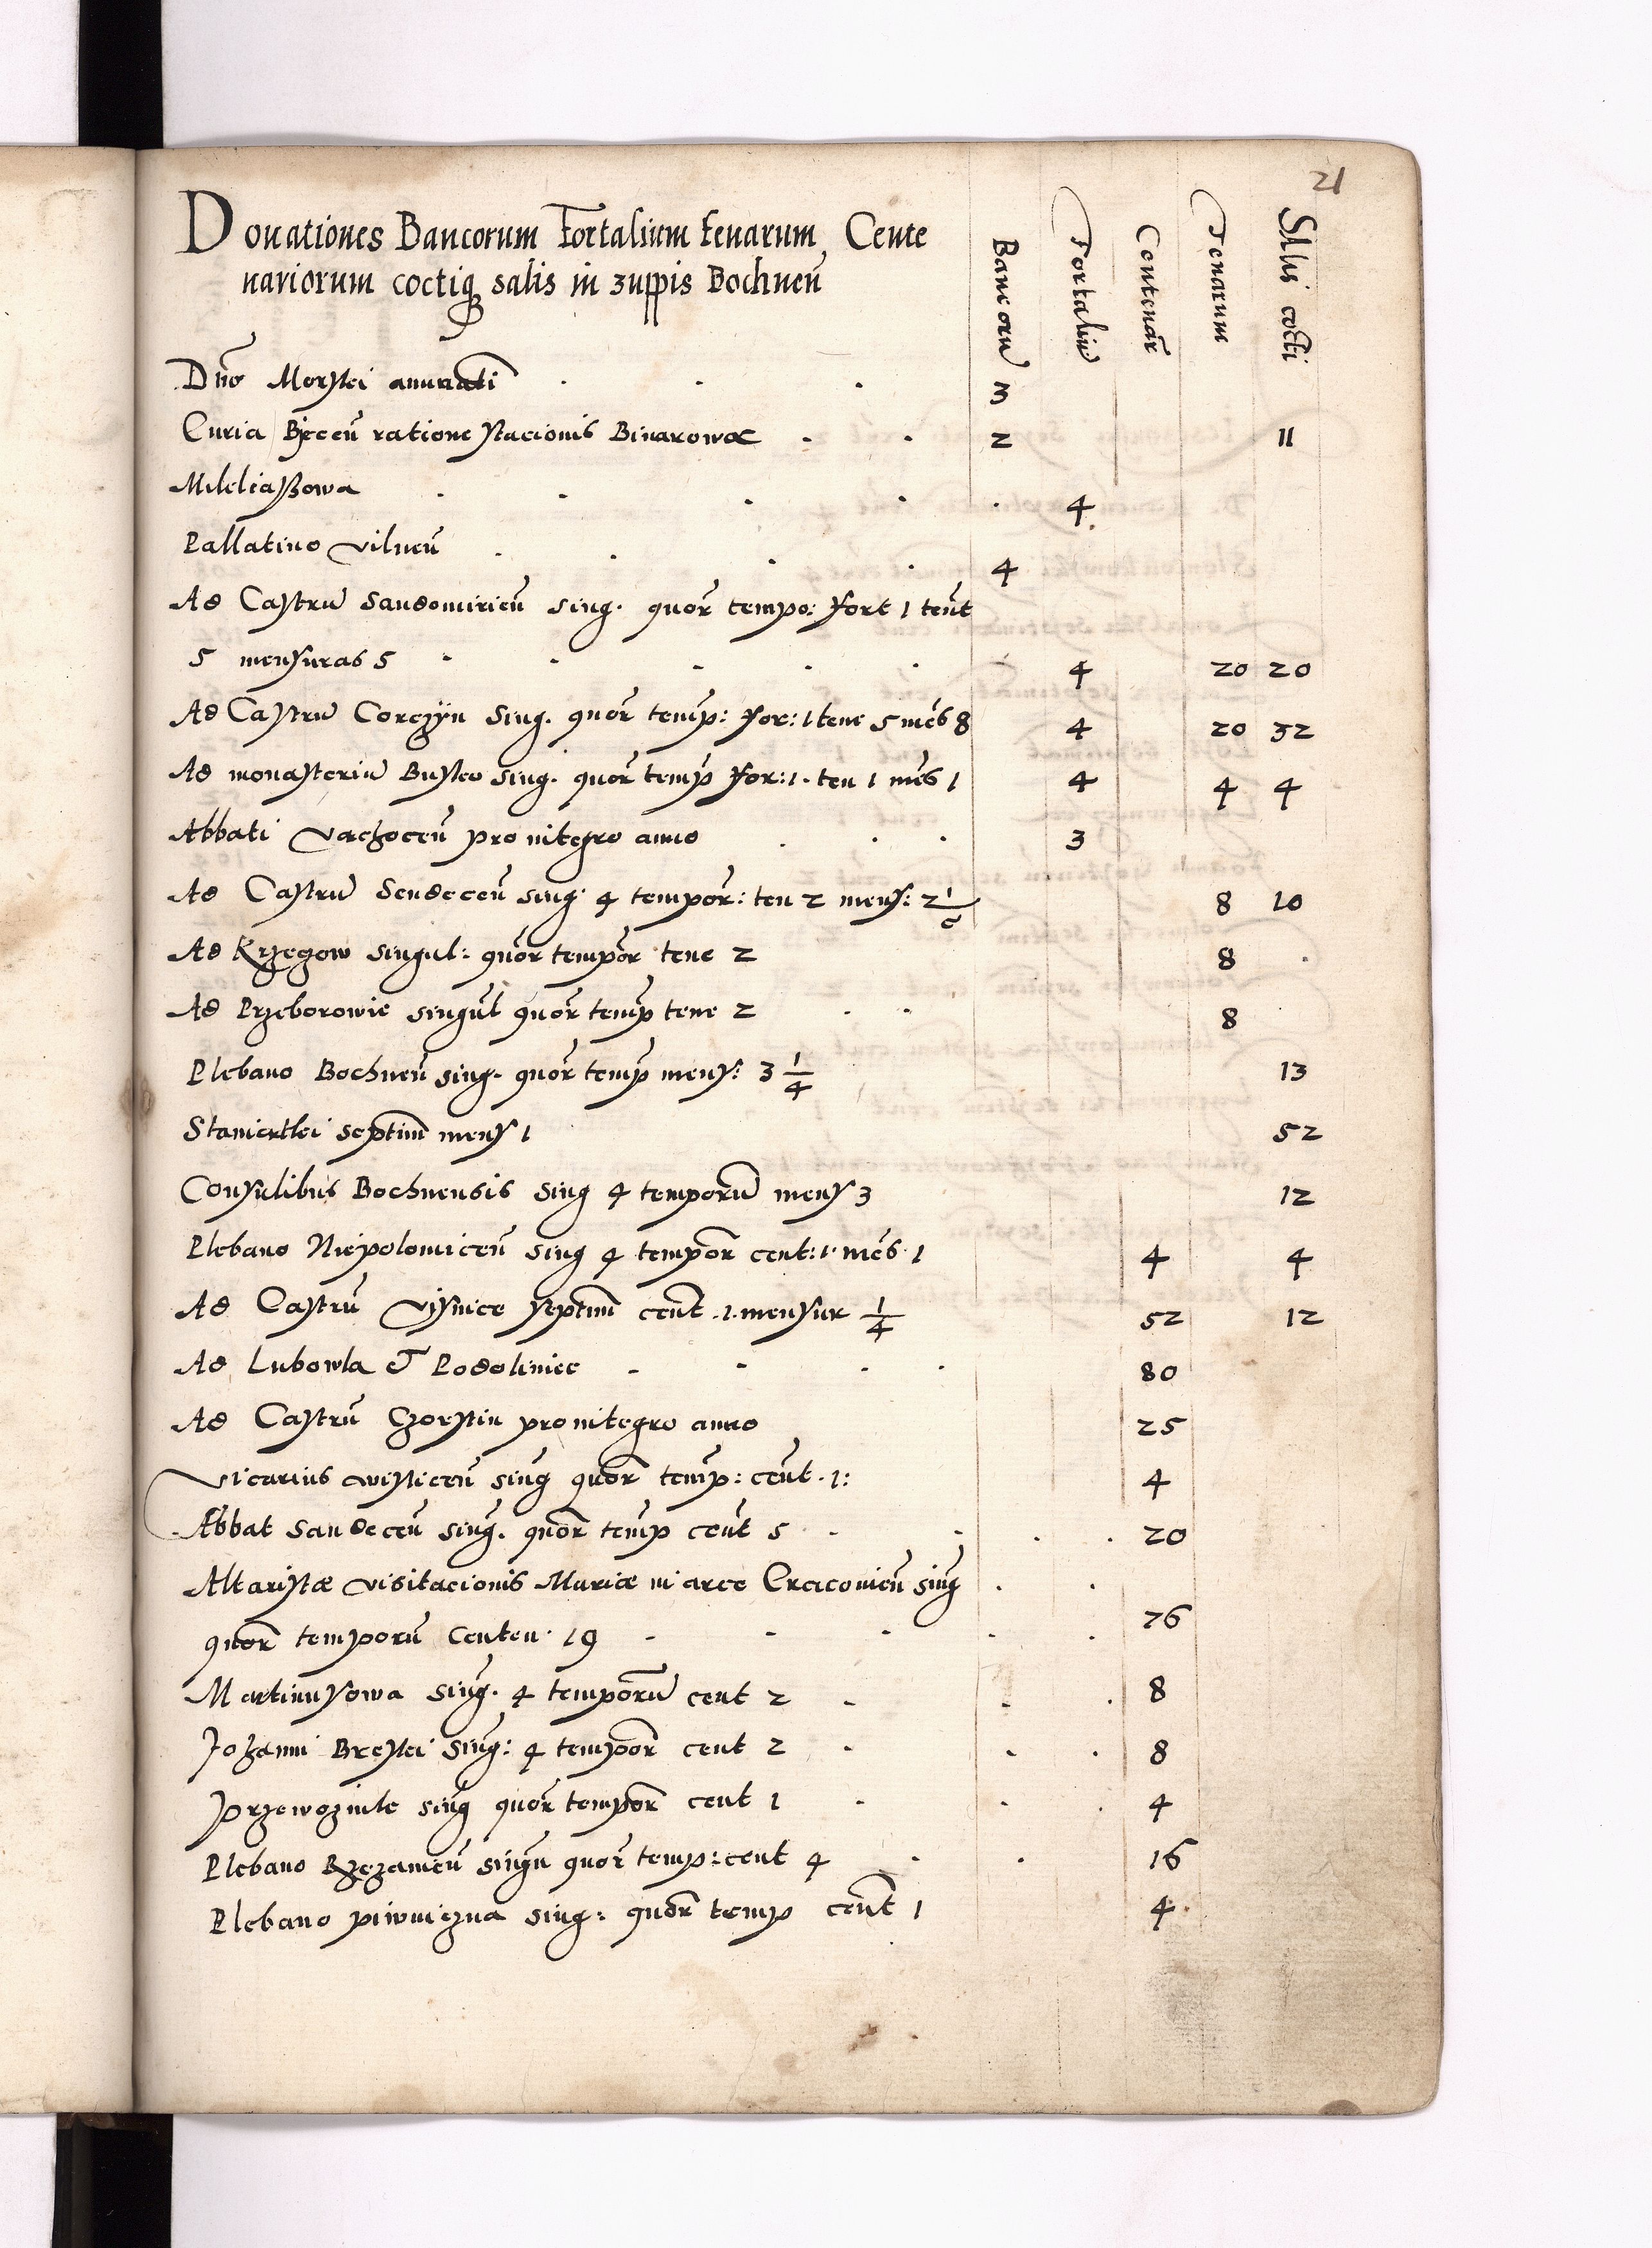 21
Donationes Bancorum Fortalium tenarum Cente
nariorum coctiq salis in zuppis Bochneñ
Bancorũ Fortaliũ Centenar̃ Tenarum Salis cocti
Dño Morstei annuati 3
Curia Bieceñ ratione stacionis Binarowæ 2 11
4
Pallatino vilneñ 4
Ad Castrũ Sandomirieñ sing. quor̃ tempo: fort 1 teñt
5 mensuras 5 4 20 20
Ad Castrũ Corczÿn sing. quor̃ temp̃: for: 1 tene 5 meñs 8 4 20 32
Ad monasteriũ Busko sing. quor̃ temp̃ for: 1. ten 1 meñs 1 4 4 4
Abbati vachoceñ pro integro anno 3
Ad Castrũ Sendeceñ sing 4 tempor̃: ten 2 mens: 2 1/2 8 10
Ad Krzegow singul: quor̃ tempor̃ tene 2 8
Ad Przeborowie singul quor̃ temp̃ tene 2 8
Plebano Bochneñ sing. quor̃ temp̃ mens: 3 1/4 13
septim̃ mens 1 52
Consulibus Bochnensis sing 4 temporũ mens 3 12
Plebano Niepolomiceñ sing 4 tempor̃ cent: 1. meñs. 1 4 4
Ad Castrũ Visnice septim̃ ceñt. 1. mensur 1/4 52 12
Ad Lubowla & Podoliniec 80
Ad Castrũ Czorstin pro integro anno 25
Vicarius wisliceñ sing quor̃ temp̃: ceñt. 1: 4
Abbat Sandeceñ sing. quor̃ temp̃ ceñt 5 20
Altaristæ visitacionis Mariæ in arce Cracovieñ sing
quor̃ temporũ Centen. 19 76
Martinusowa sing. 4 temporũ cent 2 8
Johanni sing: 4 tempor̃ cent 2 8
Przewoznile sing quor̃ tempor̃ cent 1 4
Plebano singu quor̃ temp: cent 4 16
Plebano piwniczna sing: quor̃ temp ceñt 1 4